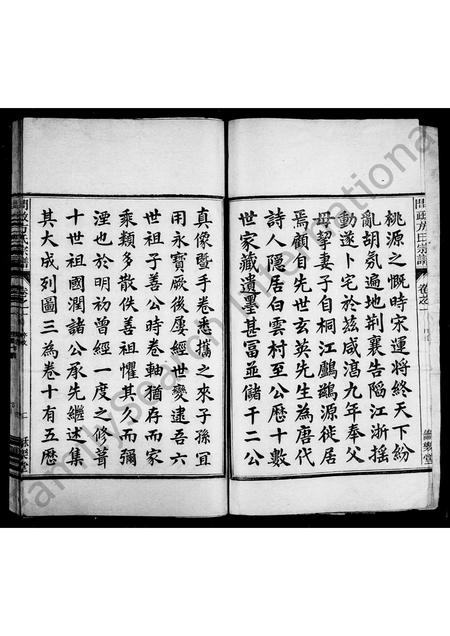 桃源之慨時宋運將終天下紛
亂胡氛遍地荆襄告陷江浙搖
動遂卜宅於兹咸淳九年奉父
母挈妻子自桐江鸕鷀源徙居
焉顧自先世玄英先生為唐代
詩人隱居白雲村至公歷十數
世家藏遺墨甚富並儲千二公
真像暨手卷悉攜之來子孫宜
用永寶厥後屢經世變逮吾六
世祖子善公時卷軸猶存而家
乘類多散佚善祖懼其久而彌
湮也於明初曾經一度之修葺
十世祖國潤諸公承先繼述集
其大成列圖三為卷十有五歷
方氏宗譜
卷之一
FamilySearch International